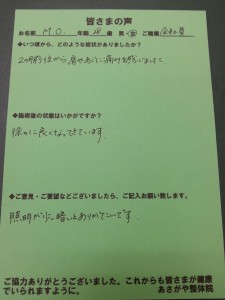 皆さまの声
お名前 M.O. 年齢 28 歳 男・女 ご職業 会社員
◆いつ頃から、どのような症状がありましたか?
2ヵ月前位から肩やあごに痛みを感じました
◆施術後の状態はいかがですか?
徐々に良くなってきています。
◆ご意見・ご要望などございましたら、ご記入お願い致します。
照明が少し暗いとありがたいです。
ご協力ありがとうございました。これからも皆さまが健康
でいられますように。 あさがや整体院